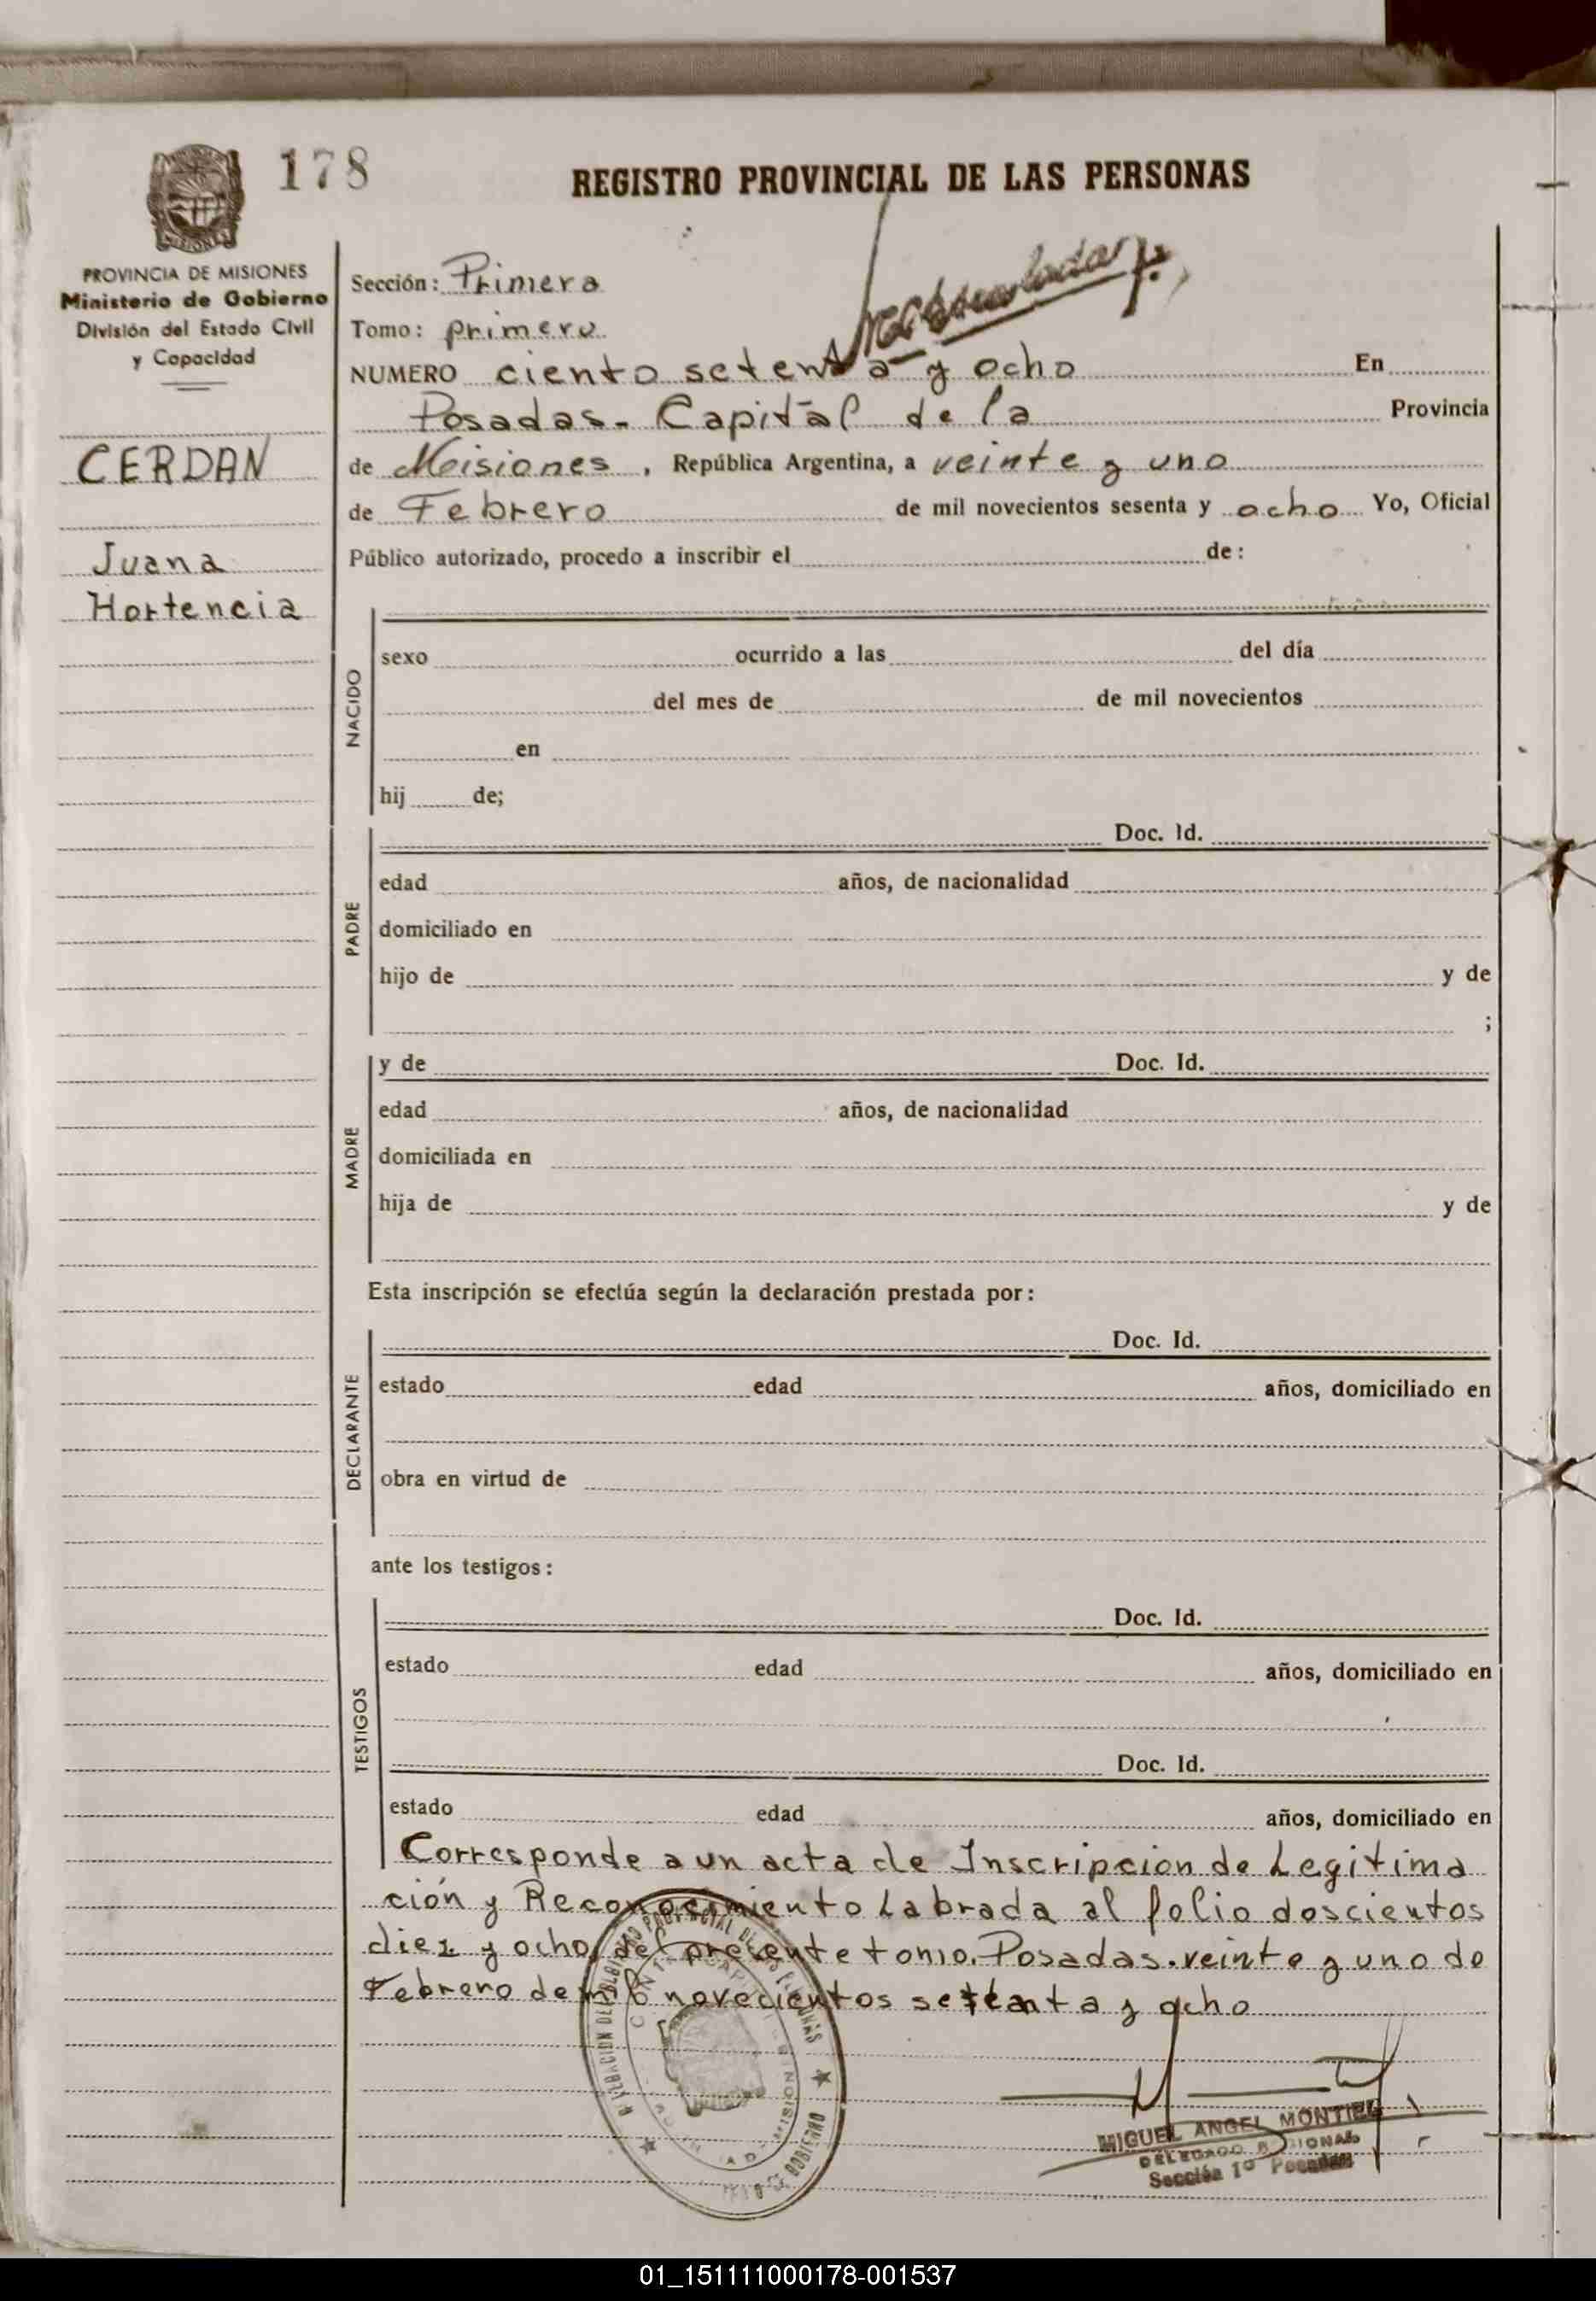 178
REGISTRO PROVINCIAL DE LAS PERSONAS
MISIONES
PROVINCIA DE MISIONES
Ministerio de Gobierno
División del Estado Civil
y Capacidad
CERDAN
Juana
Hortencia
Sección: Primera
Tomo: primero
NUMERO ciento setenta y ocho En
Posadas - Capital de la Provincia
de Misiones, República Argentina, a veinte y uno
de Febrero de mil novecientos sesenta y ocho Yo, Oficial
Público autorizado, procedo a inscribir el de:
NACIDO
sexo ocurrido a las del día
del mes de de mil novecientos
en
hij de;
PADRE
Doc. Id.
edad años, de nacionalidad
domiciliado en
hijo de y de
;
MADRE
y de Doc. Id.
edad años, de nacionalidad
domiciliada en
hija de y de
Esta inscripción se efectúa según la declaración prestada por:
DECLARANTE
Doc. Id.
estado edad años, domiciliado en
obra en virtud de
ante los testigos:
TESTIGOS
Doc. Id.
estado edad años, domiciliado en
Doc. Id.
estado edad años, domiciliado en
Corresponde a un acta de Inscripcion de Legitima
ción y Reconocimiento Labrada al folio doscientos
diez y ocho, del presente tomo. Posadas. veinte y uno de
Febrero de mil novecientos setenta y ocho
MIGUEL ANGEL MONTIEL
DELEGADO REGIONAL
Sección 1º Posadas
01_151111000178-001537